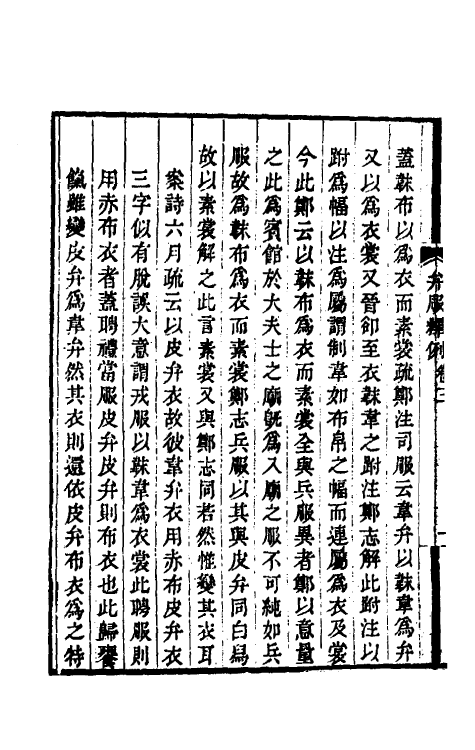 弁服釋例卷二
蓋韎布以爲衣而素裳疏鄭注司服云韋弁以韎韋爲弁
又以爲衣裳又晉郤至衣韎韋之跗注鄭志解此跗注以
跗爲幅以注爲屬謂制韋如布帛之幅而連屬爲衣及裳
今此鄭云以韎布爲衣而素裳全與兵服異者鄭以意量
之此爲賓館於大夫士之廟旣爲入廟之服不可純如兵
服故爲韎布爲衣而素裳鄭志兵服以其與皮弁同白舄
故以素裳解之此言素裳又與鄭志同若然惟變其衣耳
案詩六月疏云以皮弁衣故彼韋弁衣用赤布皮弁衣
三字似有脫誤大意謂戎服以韎韋爲衣裳此聘服則
用赤布衣者蓋聘禮當服皮弁皮弁則布衣也此歸饔
餼雖變皮弁爲韋弁然其衣則還依皮弁布衣爲之特